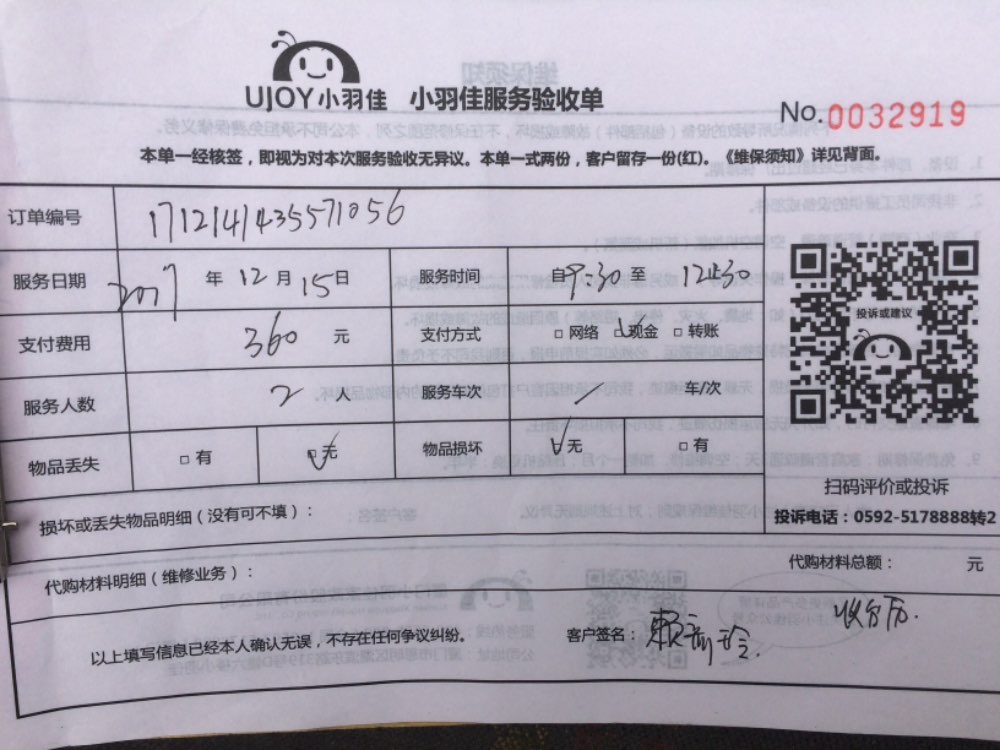 UJOY小羽佳 小羽佳服务验收单
No.0032919
本单一经核签，即视为对本次服务验收无异议。本单一式两份，客户留存一份(红)。《维保须知》详见背面。
订单编号 1712141435571056
服务日期 2017 年 12 月 15 日 服务时间 自 9:30 至 12:30
支付费用 360 元 支付方式 □ 网络 ☑ 现金 □ 转账
服务人数 2 人 服务车次 / 车/次
物品丢失 □ 有 ☑ 无 物品损坏 ☑ 无 □ 有
投诉或建议
扫码评价或投诉
投诉电话：0592-5178888转2
损坏或丢失物品明细（没有可不填）：
代购材料明细（维修业务）： 代购材料总额： 元
以上填写信息已经本人确认无误，不存在任何争议纠纷。 客户签名：